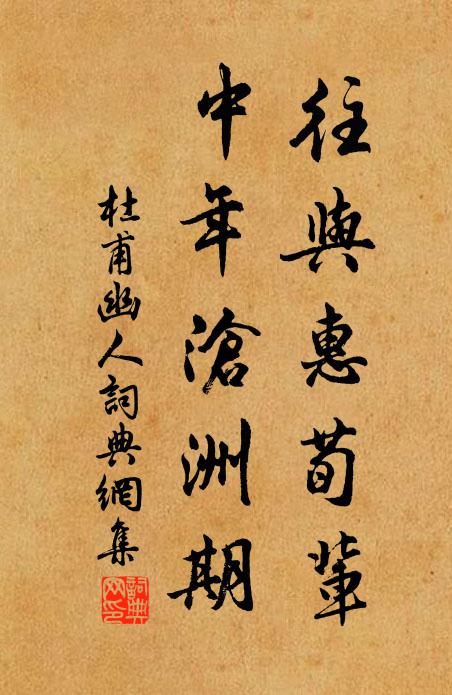 往與惠荀輩
中年滄洲期
杜甫幽人詞典網集
詞典網印